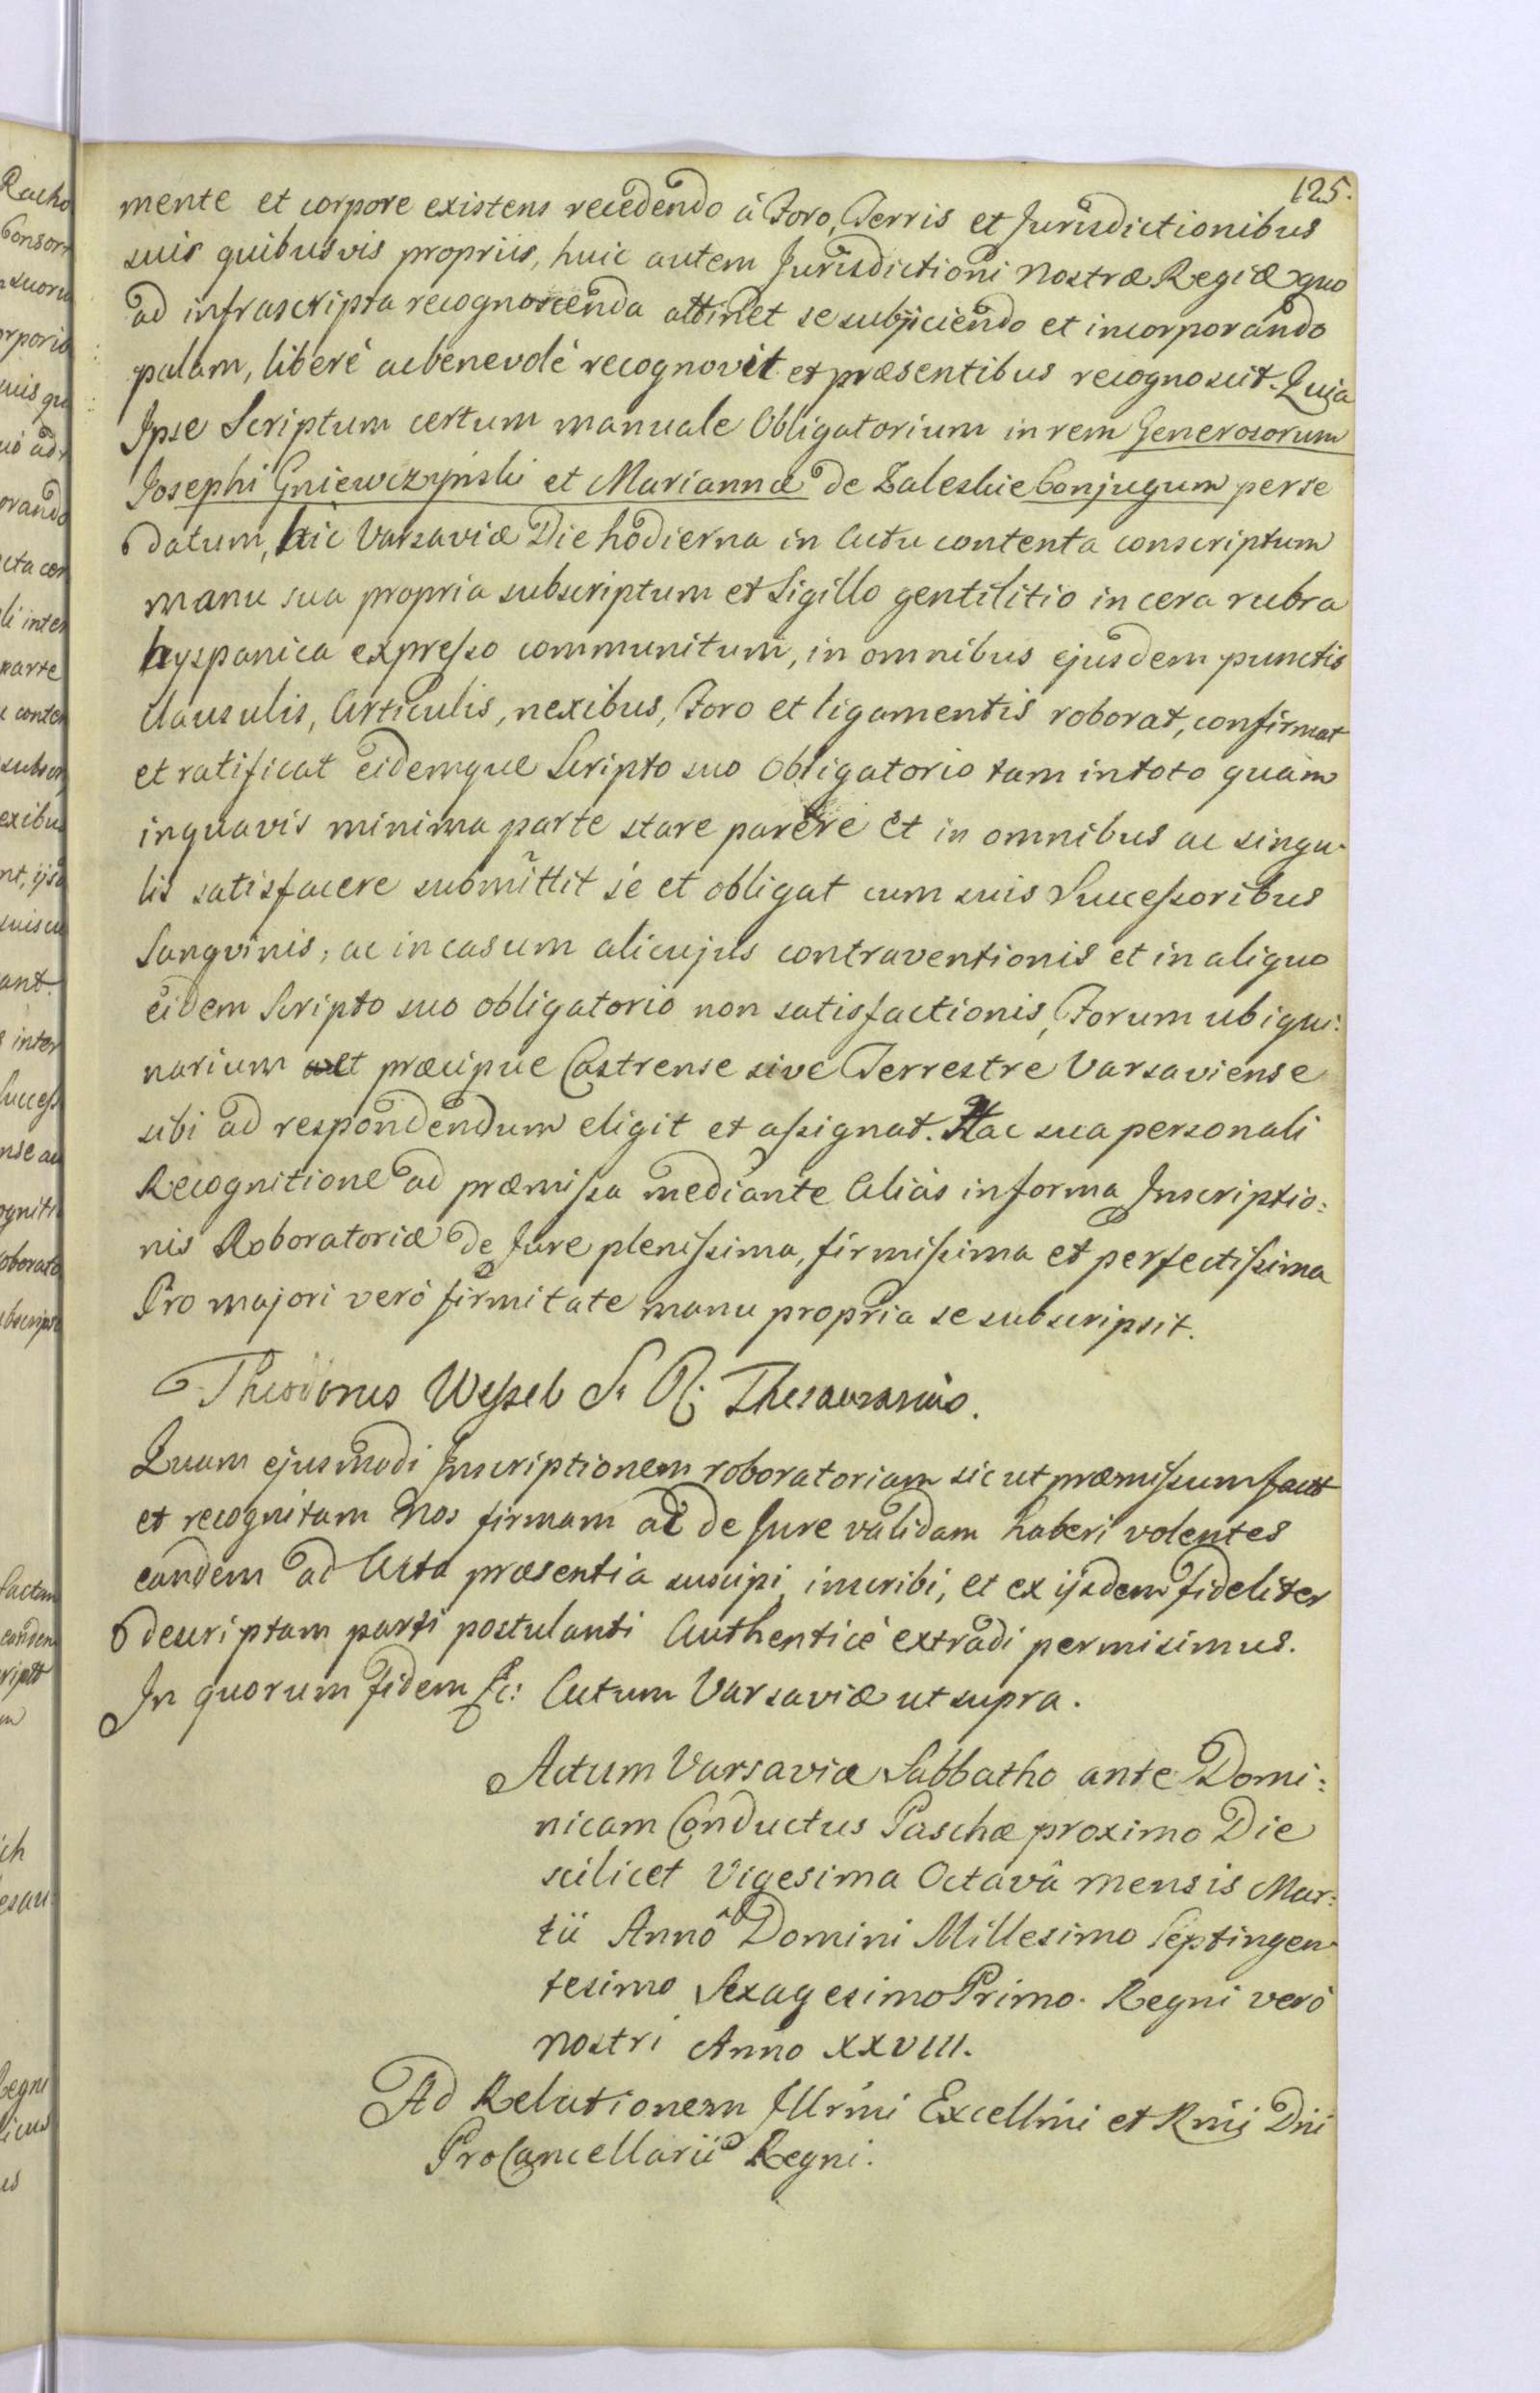 125.
mente et corpore existens recedendo à Foro, Terris et Jurisdictionibus
suis quibusvis propriis, huic autem Jurisdictioni Nostræ Regiæ quo
ad infrascripta recognoscenda attinet se subjiciendo et incorporando
palam, liberè ac benevolè recognovit et præsentibus recognoscit. Quia
Ipse Scriptum certum manuale Obligatorium in rem Generosorum
Josephi Gniewczyński et Mariannæ de Zaleskie Conjugum per se
datum, hic Varsaviæ Die hodierna in Actu contenta conscriptum
manu sua propria subscriptum et Sigillo gentilitio in cera rubra
hyspanica expresso communitum, in omnibus ejusdem punctis
Clausulis, Articulis, nexibus, Foro et ligamentis roborat, confirmat
et ratificat eidemque Scripto suo Obligatorio tam in toto quàm
in quavis minima parte stare parére et in omnibus ac singu-
lis satisfacere submittit se et obligat cum suis Successoribus
Sangvinis, ac in casum alicujus contraventionis et in aliquo
eidem Scripto suo obligatorio non satisfactionis, Forum ubiqui:
narium et præcipue Castrense sive Terrestre Varsaviense
sibi ad respondendum eligit et assignat. Hac sua personali
Recognitione ad præmissa mediante Aliàs in forma Inscriptio:
nis Roboratoriæ de Jure plenissima, firmissima et perfectissima
Pro majori verò firmitate manu propria se subscripsit.
Theodorus Wessel S. R. Thesaurarius.
Quam ejusmodi Inscriptionem roboratoriam sic ut præmissum fact
et recognitam Nos firmam ac de Jure validam haberi volentes
eandem ad Acta præsentia suscipi, inscribi, et ex ijsdem fideliter
descriptam parti postulanti Authenticè extradi permisimus.
In quorum fidem &c: Actum Varsaviæ ut supra.
Actum Varsaviæ Sabbatho ante Domi:
nicam Conductus Paschæ proximo Die
scilicet Vigesima Octavâ mensis Mar:
tii Annô Domini Millesimo Septingen-
tesimo Sexagesimo Primo. Regni verò
nostri Anno XXVIII.
Ad Relationem Illrmi Excellmi et Rmi Dni
ProCancellarii Regni.